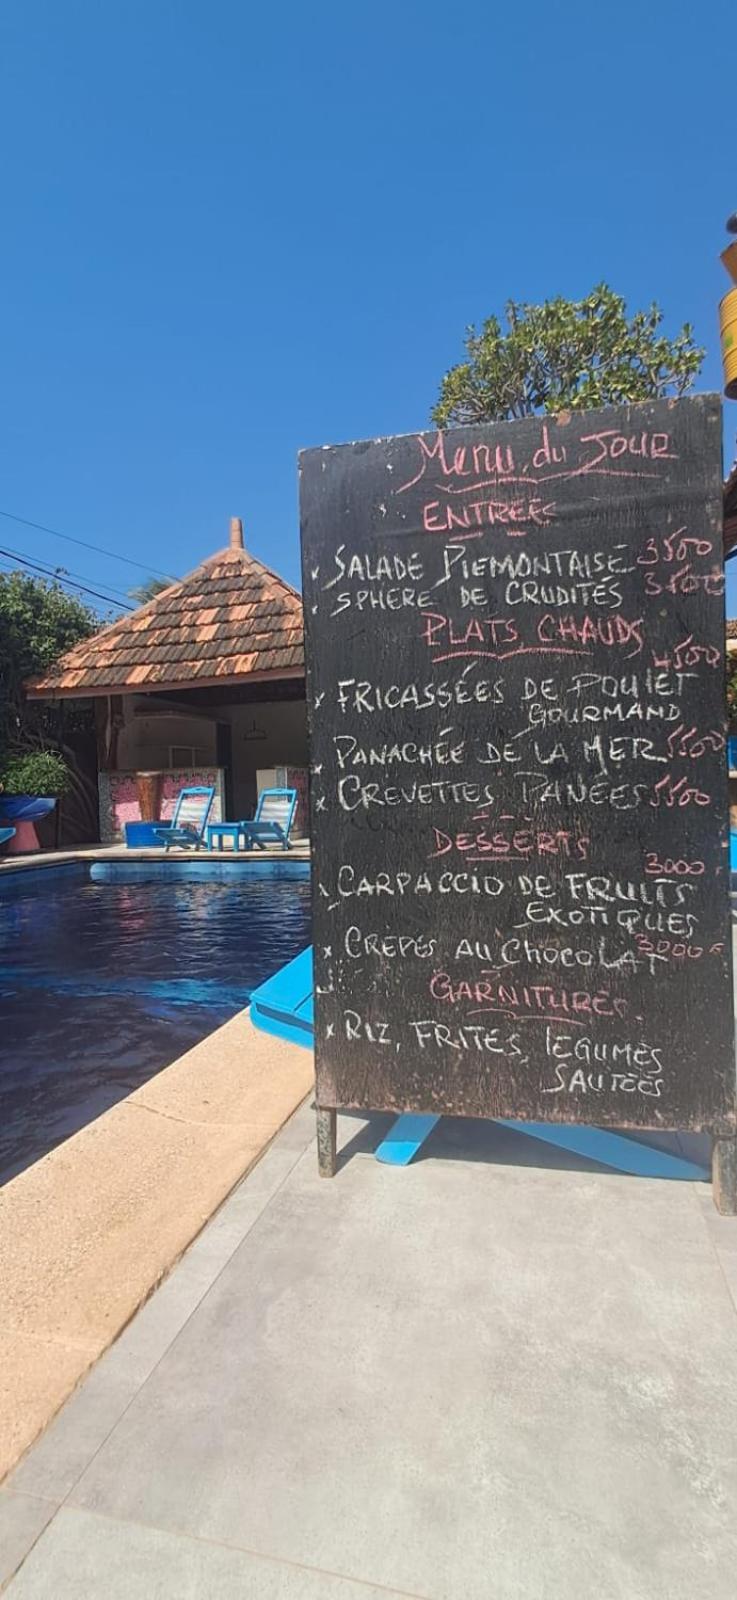 Menu du Jour
ENTRÉES
x SALADE PIEMONTAISE 3500
x SPHERE DE CRUDITÉS 3500
PLATS CHAUDS
4500
x FRICASSÉES DE POULET
GOURMAND
x PANACHÉE DE LA MER 5500
x CREVETTES PANEES 5500
DESSERTS
3000 F
x CARPACCIO DE FRUITS
EXOTIQUES
x CRÈPES AU CHOCOLAT 3000 F
GARNITURES
x RIZ, FRITES, LEGUMES
SAUTÉES